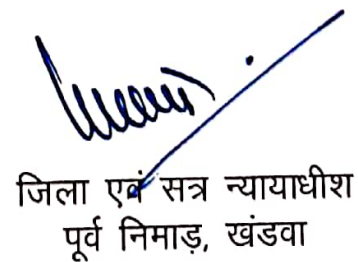 जिला एवं सत्र न्यायाधीश
पूर्व निमाड़, खंडवा